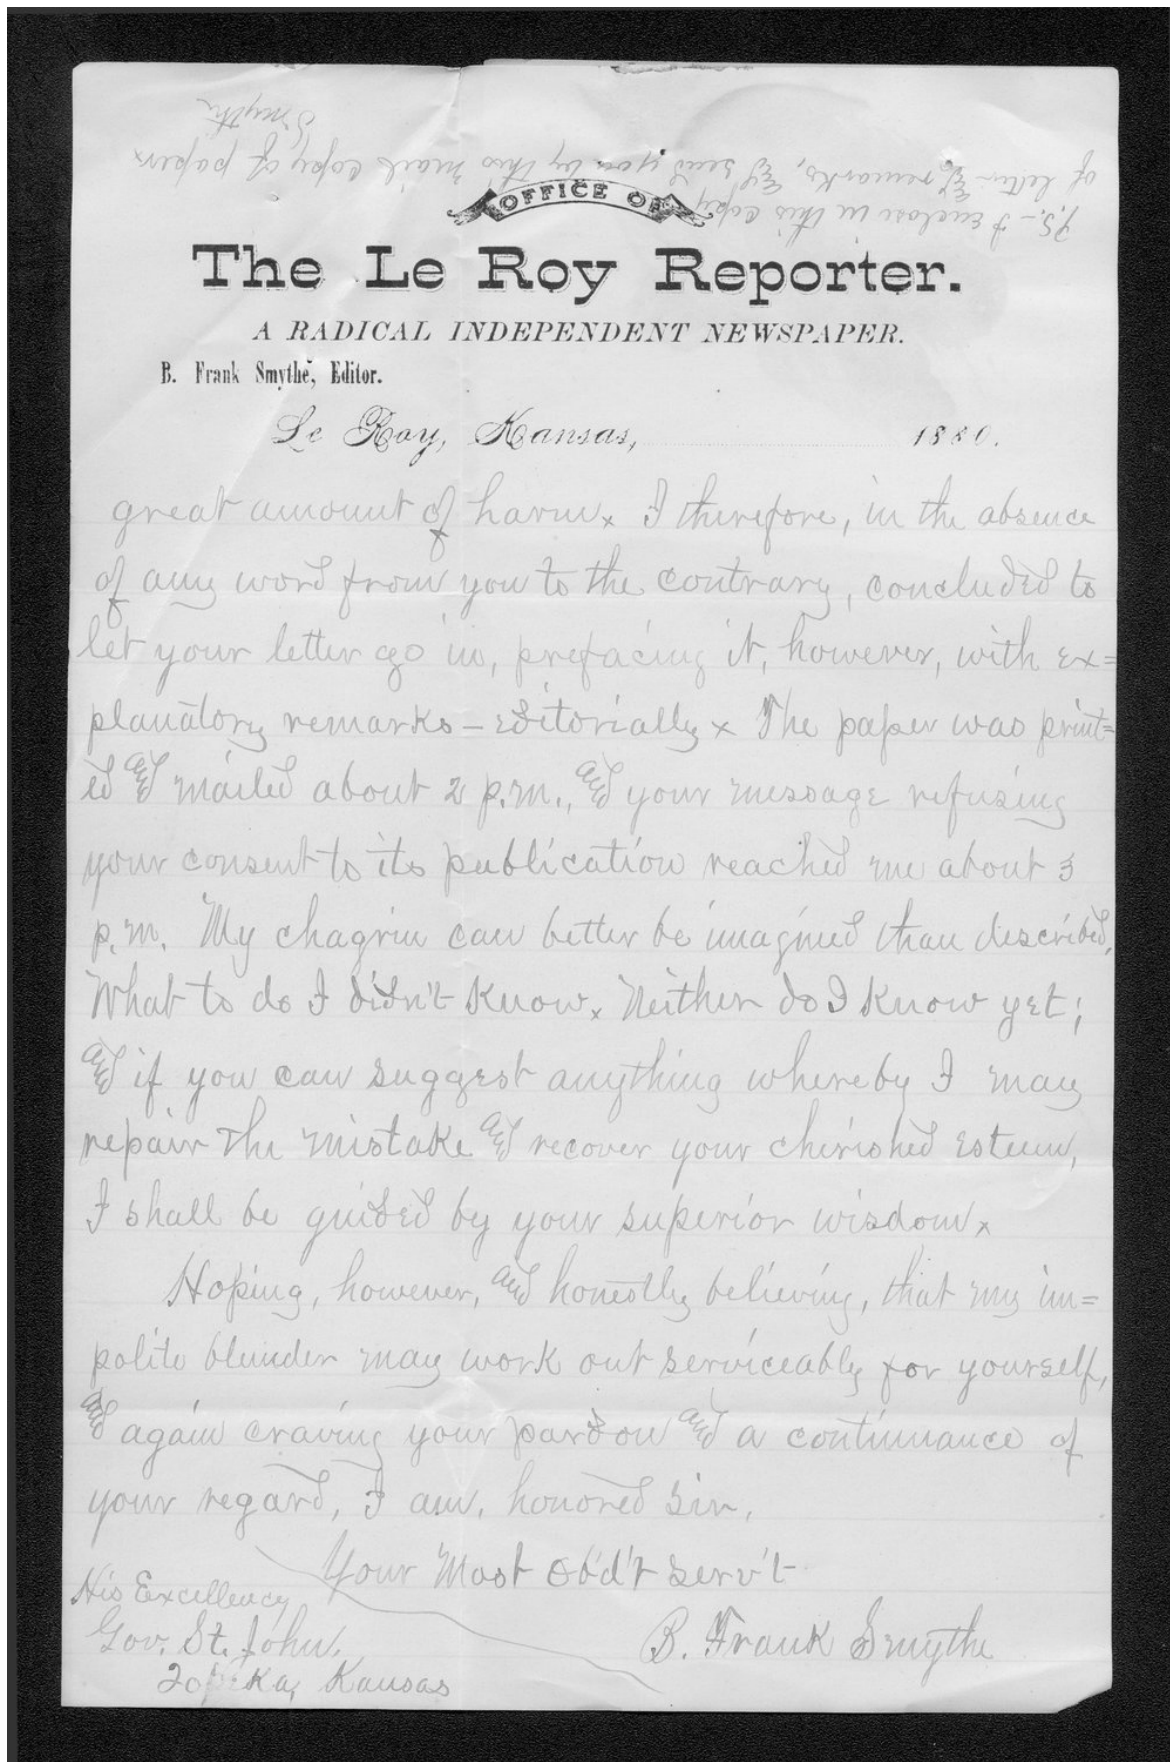 P.S. – I enclose in this copy
of letter & remarks, & send you by this mail copy of paper.
Smythe
OFFICE OF
The Le Roy Reporter.
A RADICAL INDEPENDENT NEWSPAPER.
B. Frank Smythe, Editor.
Le Roy, Kansas, 1880.
great amount of harm. I therefore, in the absence
of any word from you to the contrary, concluded to
let your letter go in, prefacing it, however, with ex=
planatory remarks – editorially. The paper was print=
ed and mailed about 2 p.m., and your message refusing
your consent to its publication reached me about 3
p.m. My chagrin can better be imagined than described.
What to do I didn't know. Neither do I know yet;
and if you can suggest anything whereby I may
repair the mistake and recover your cherished esteem,
I shall be guided by your superior wisdom.
Hoping, however, and honestly believing, that my im=
polite blunder may work out serviceably for yourself,
and again craving your pardon and a continuance of
your regard, I am, honored sir,
Your Most Ob'd't Serv't
B. Frank Smythe
His Excellency
Gov. St. John,
Topeka, Kansas